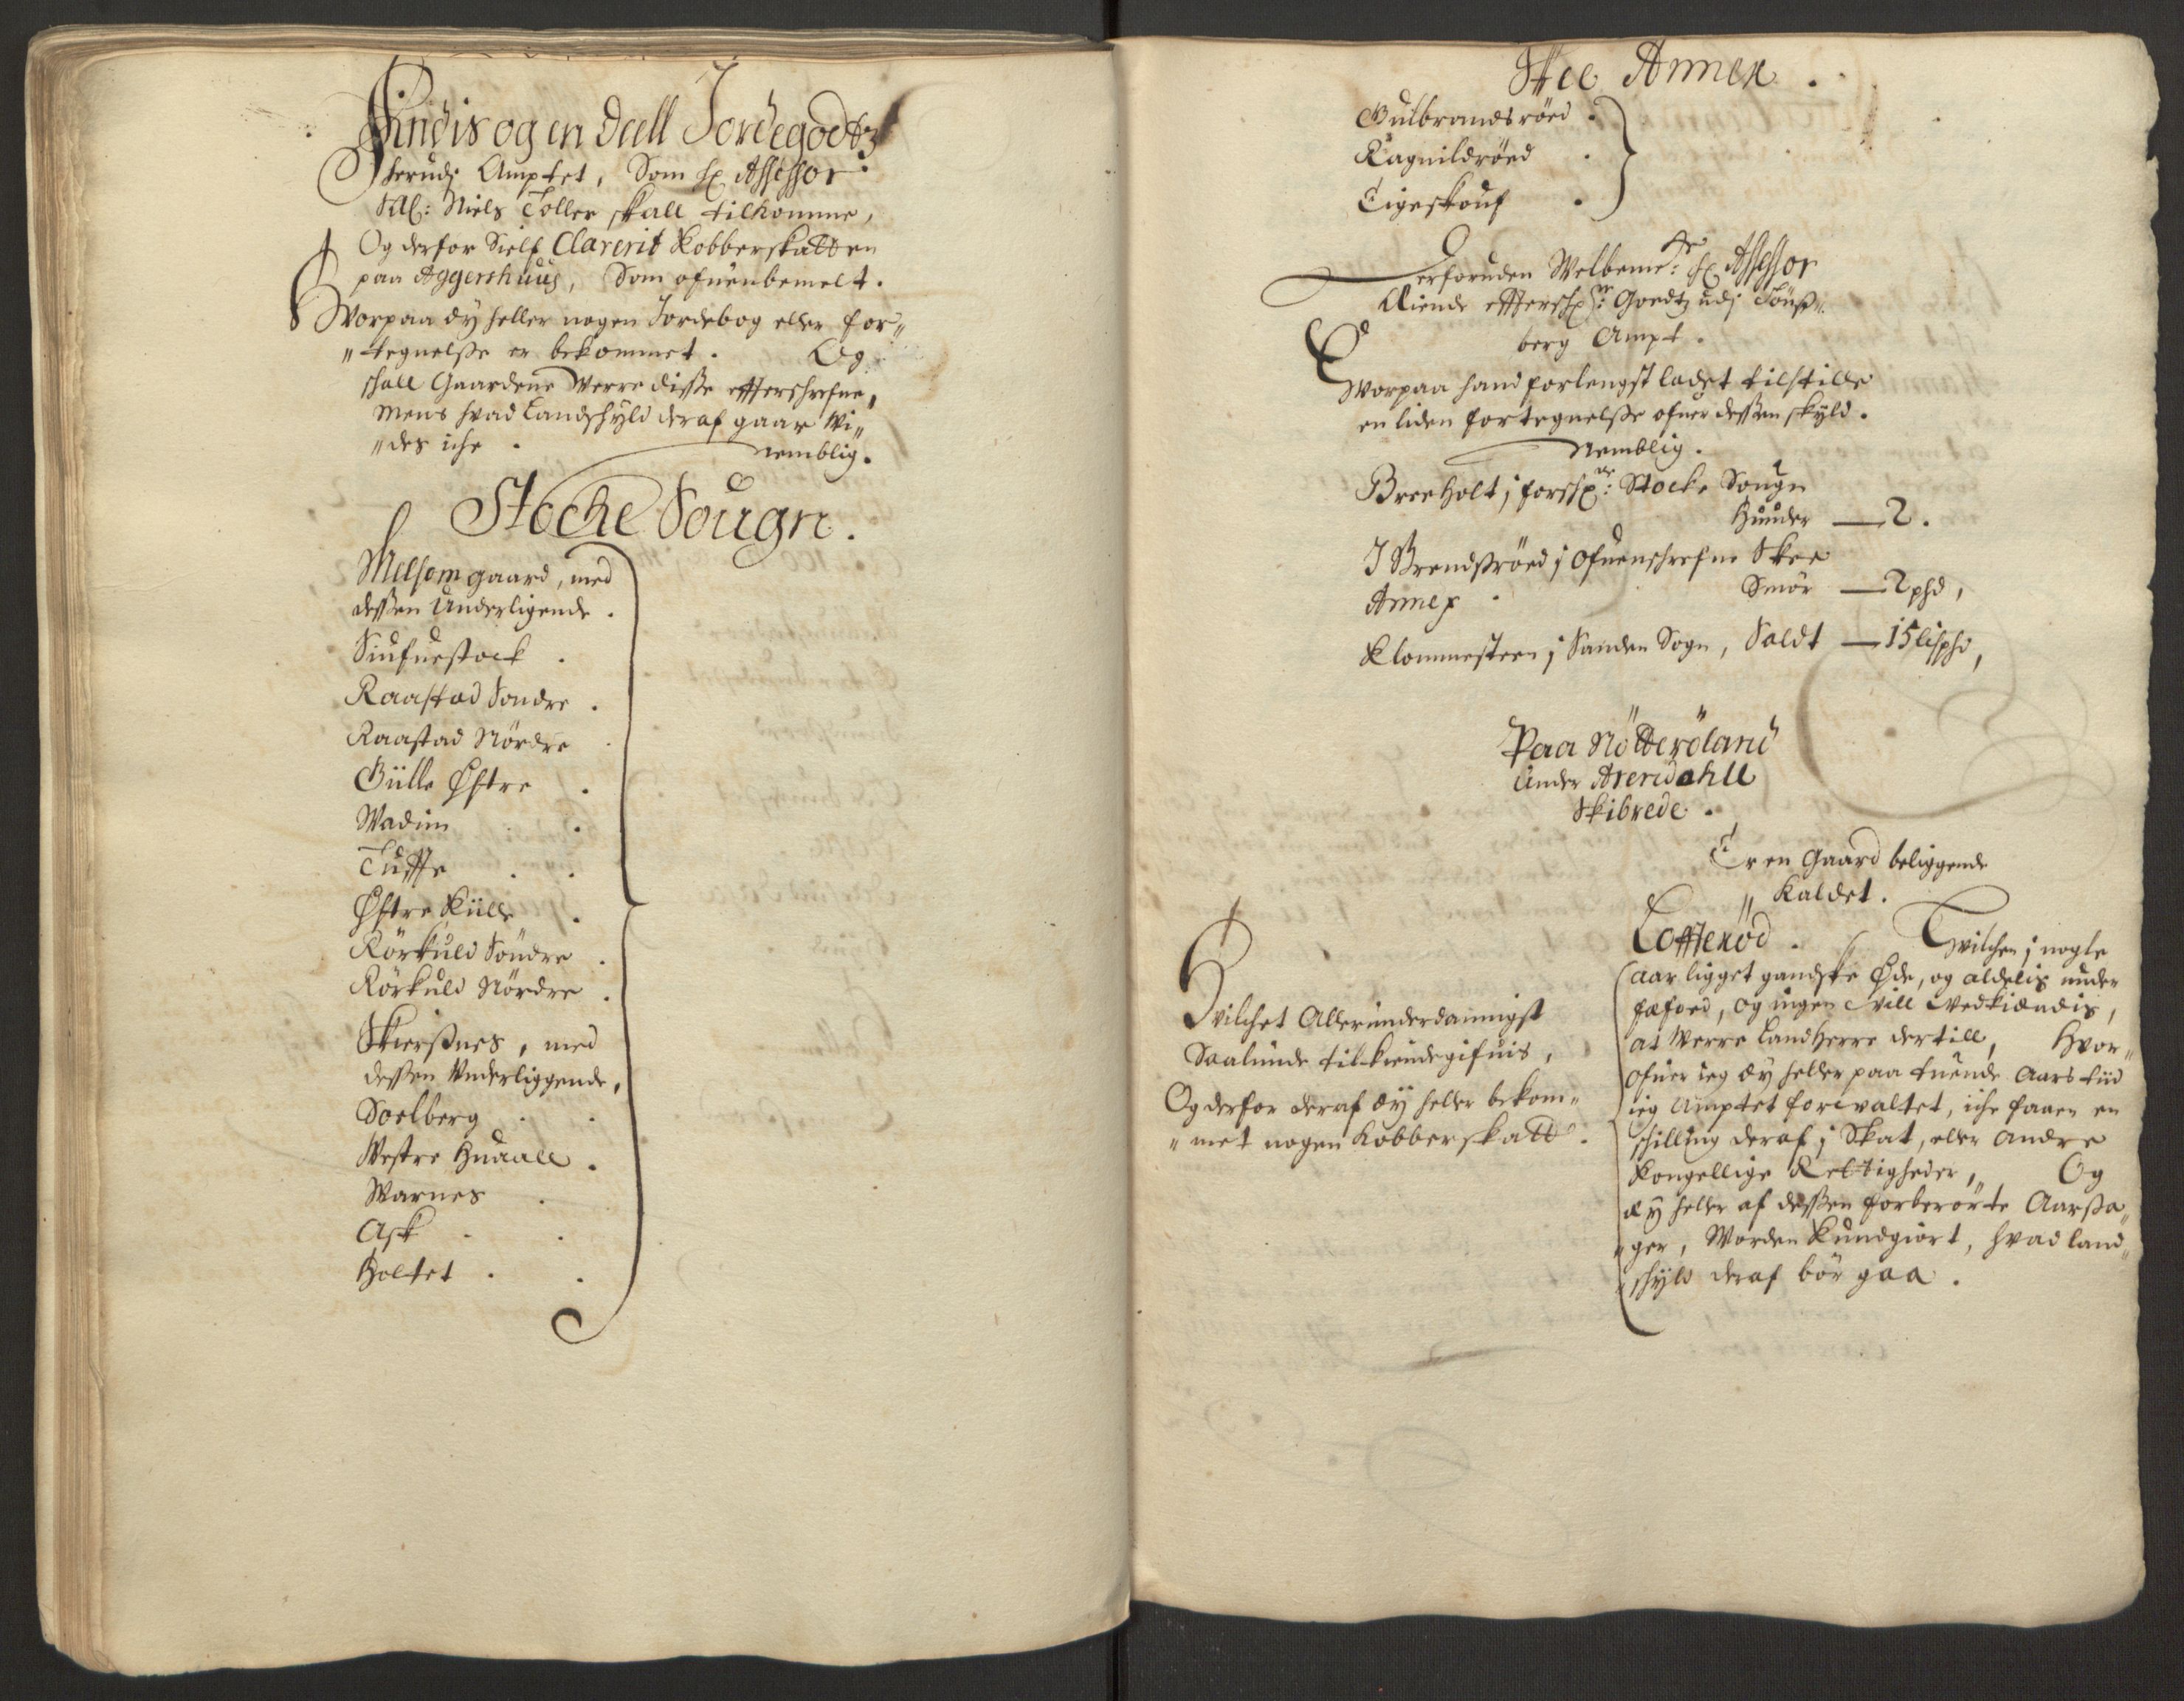 Findis og en deell Jordegodtz
herudj Amptet, Som hr Assessor
Sal: Niels Toller skall tilkomme,
Og derfor Sielf Clarerit Kobberskatten
paa Aggershuus, Som ofuenbemelt.
Hvorpaa ey heller nogen Jordebog eller for„
„tegnelsse er bekommet. Og
schall Gaardene Werre disse effterschrefne,
Mens huad Landschyld deraf gaar Wi„
„des iche. Nemblig.
Stocke Sougn.
Melsom gaard, med
dessen Underligende.
Siufuestock.
Raastad Søndre.
Raastad Nørdre
Gülle Østre.
Wadim.
Tuffte.
Østre Kiille.
Rørkuld Søndre.
Rørkuld Nørdre.
Skierssnes, med
dessen Underliggende,
Soelberg.
Westre Huaall.
Warnes.
Ask.
Holtet.
Skee Annex.
Gulbrandsröed.
Ragnildröed.
Eigeskouf.
Derforuden Welbemte: hr Assessor
Eiende effterschrne: Goedtz udj Tönss„
berg Ampt.
Hvorpaa hand forlengst ladet tilstille
en liden fortegnelsse ofuer dessen skyld.
Nemblig.
Breeholt j forschrne: Stocke Sougn
Huuder — 2.
I Brendssröed j ofuenschrefne Skee
Annex. Smör — 2 phd,
Klommesteen j Sanden Sogn, Saldt — 15 lisphd,
Paa Nötteröland
Under Arendahll
Skibrede.
Er en Gaard beliggende
„ Kaldet.
Lofftenöd. Hvilchen j nogle
aar ligget gandske Øde, og aldelis under
fæfoed, og ingen Will Wedkiendis,
at Werre Landherre dertill, Hvor„
ofuer ieg ey heller paa tuende Aars tiid
ieg Amptet forvaltet, iche faaen en
schilling deraf j Skat, eller andre
Kongellige Rettigheder, Og
ey heller af dessen forberörte Aarssa„
„ger, Worden Kundgiort, huad land„
„schyld deraf bör gaa.
Hvilchet Allerunderdannigst
Saalunde tilkiendegifuis,
Og derfor deraf ey heller bekom„
„met nogen Kobberskatt.